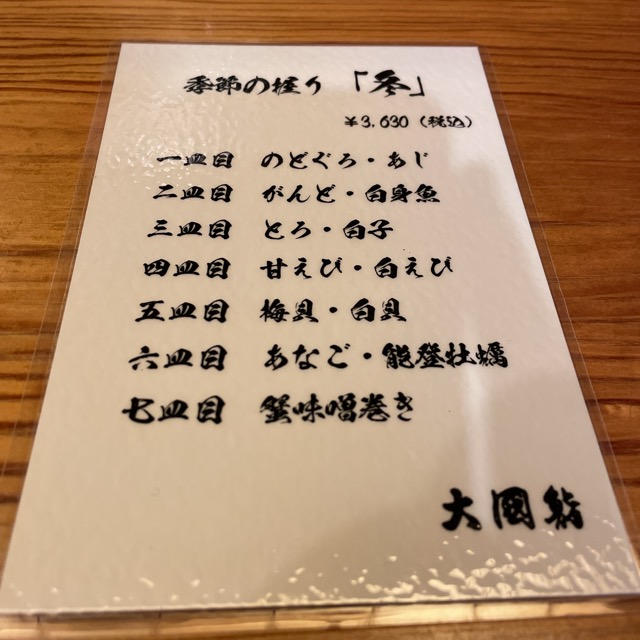 季節の握り「冬」
¥3,630（税込）
一皿目 のどぐろ・あじ
二皿目 がんど・白身魚
三皿目 とろ・白子
四皿目 甘えび・白えび
五皿目 梅貝・白貝
六皿目 あなご・能登牡蠣
七皿目 蟹味噌巻き
大國鮨